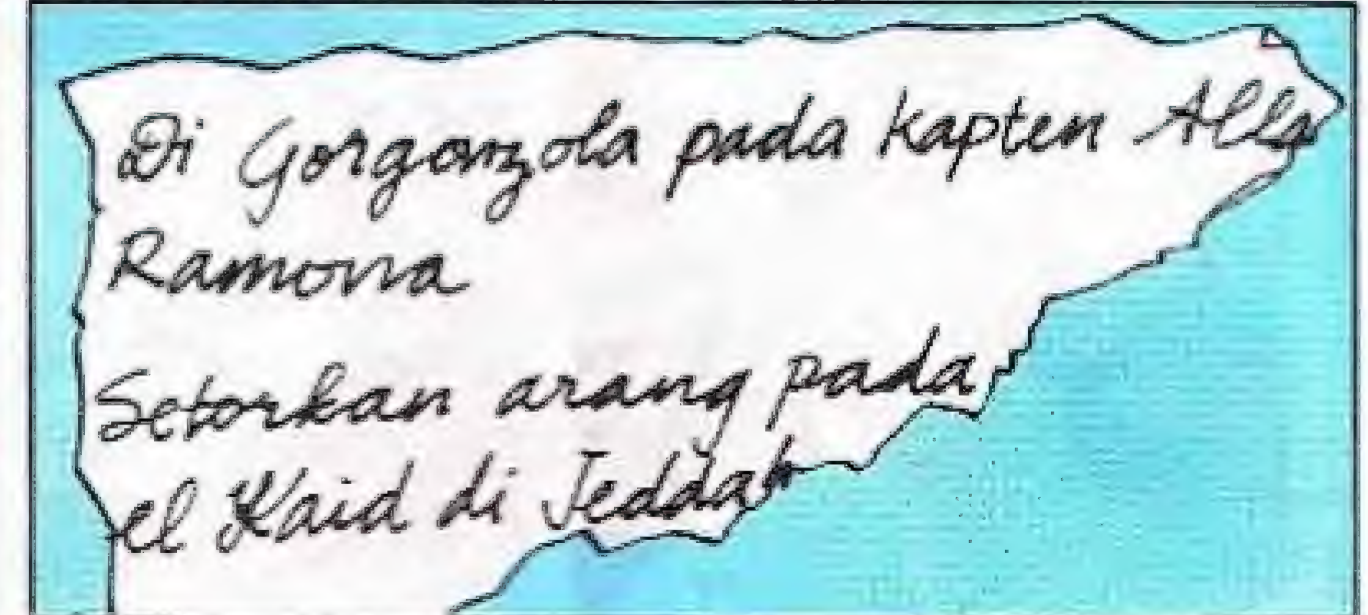 Di Gorgonzola pada kapten Alla
Ramona
Setorkan arang pada
el Kaid di Jeddah